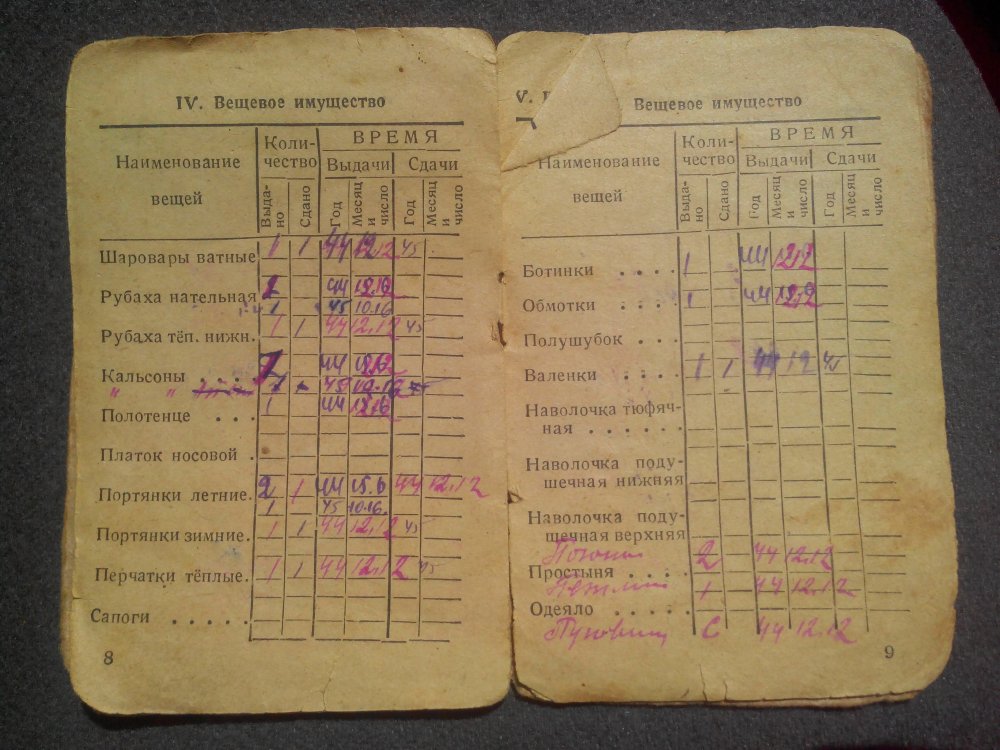 IV. Вещевое имущество
Наименование вещей
Коли-
чество
ВРЕМЯ
Выдачи
Сдачи
Выда-
но
Сдано
Год
Месяц
и
число
Год
Месяц
и
число
Шаровары ватные 1 1 44 12.12 45
Рубаха нательная 2 44
1 45 10.16
Рубаха тёп. нижн. 1 1 44 12.12 45
Кальсоны . . . . 44
" " 1 45 10.16
Полотенце . . . 1 44
Платок носовой .
Портянки летние. 2 1 44 15.6 44 12.12
1 45 10.16.
Портянки зимние. 1 1 44 12.12 45
Перчатки тёплые. 1 1 44 12.12 45
Сапоги . . . . .
8
V.
Вещевое имущество
Наименование
вещей
Коли-
чество
ВРЕМЯ
Выдачи
Сдачи
Выда-
но
Сдано
Год
Месяц
и
число
Год
Месяц
и
число
Ботинки . . . . 1 44 12.12
Обмотки . . . . 1 44 12.12
Полушубок . . .
Валенки . . . . 1 1 44 12 45
Наволочка тюфяч-
ная . . . . . .
Наволочка поду-
шечная нижняя
Наволочка поду-
шечная верхняя
Погоны 2 44 12.12
Простыня . . . .
Петлиц 1 44 12.12
Одеяло . . . . .
Пуговиц С 44 12.12
9